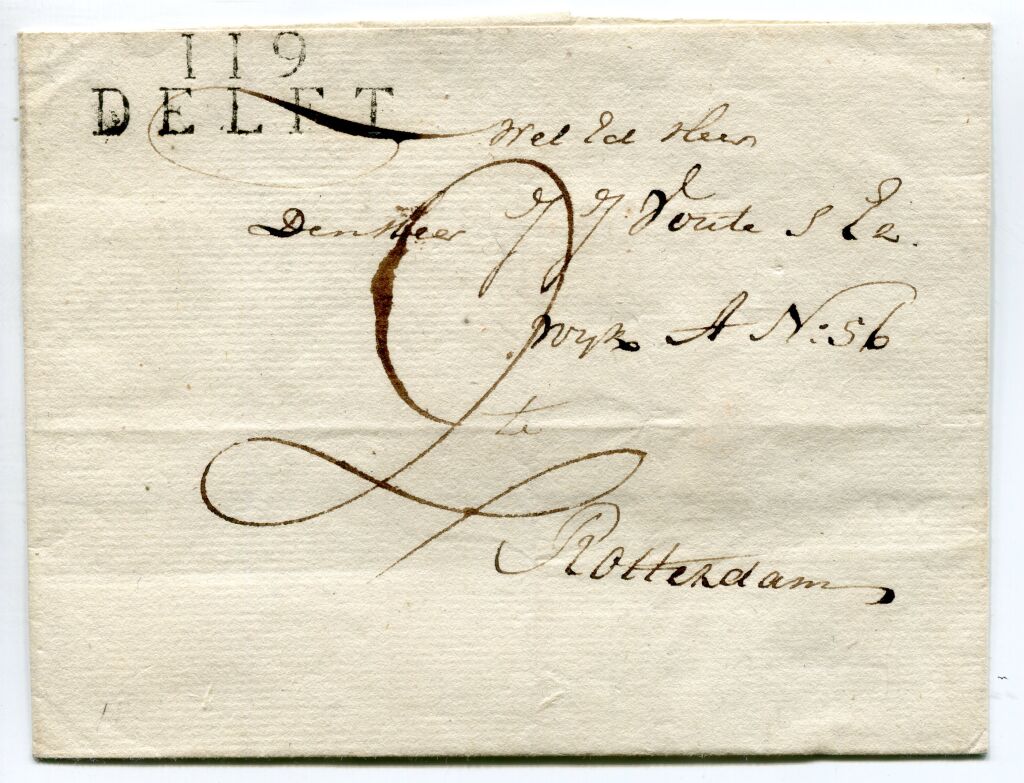 119
DELFT
Wel Ed Heer
Den Heer J J Voute
wyk A N: 56
te
2
Rotterdam